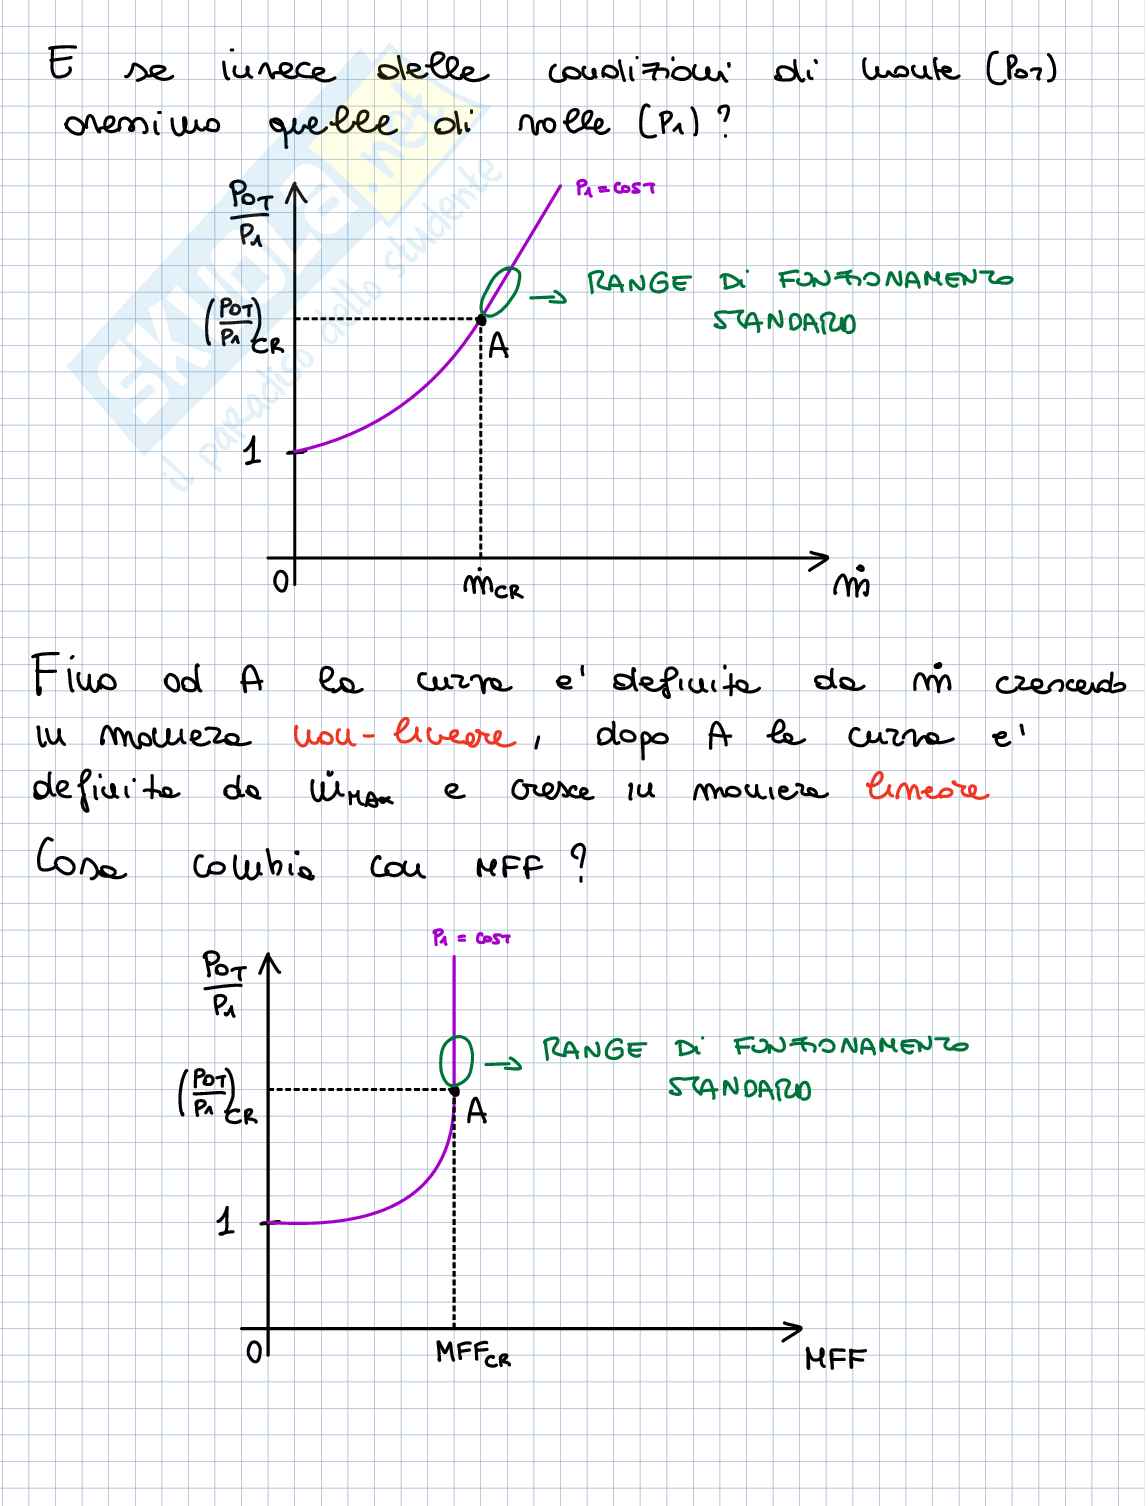 E se invece delle condizioni di monte (P0T)
avessimo quelle di valle (P1)?
P0T
P1
P1 = COST
RANGE Di FUNZIONAMENTO
STANDARD
(P0T/P1)CR
A
1
0
ṁCR
ṁ
Fino ad A la curva e' definita da ṁ crescendo
in maniera non-lineare, dopo A la curva e'
definita da ṁMAX e cresce in maniera lineare
Cosa cambia con MFF ?
P1 = COST
P0T
P1
RANGE Di FUNZIONAMENTO
STANDARD
(P0T/P1)CR
A
1
0
MFFCR
MFF
SKUOLA.net
il paradiso dello studente